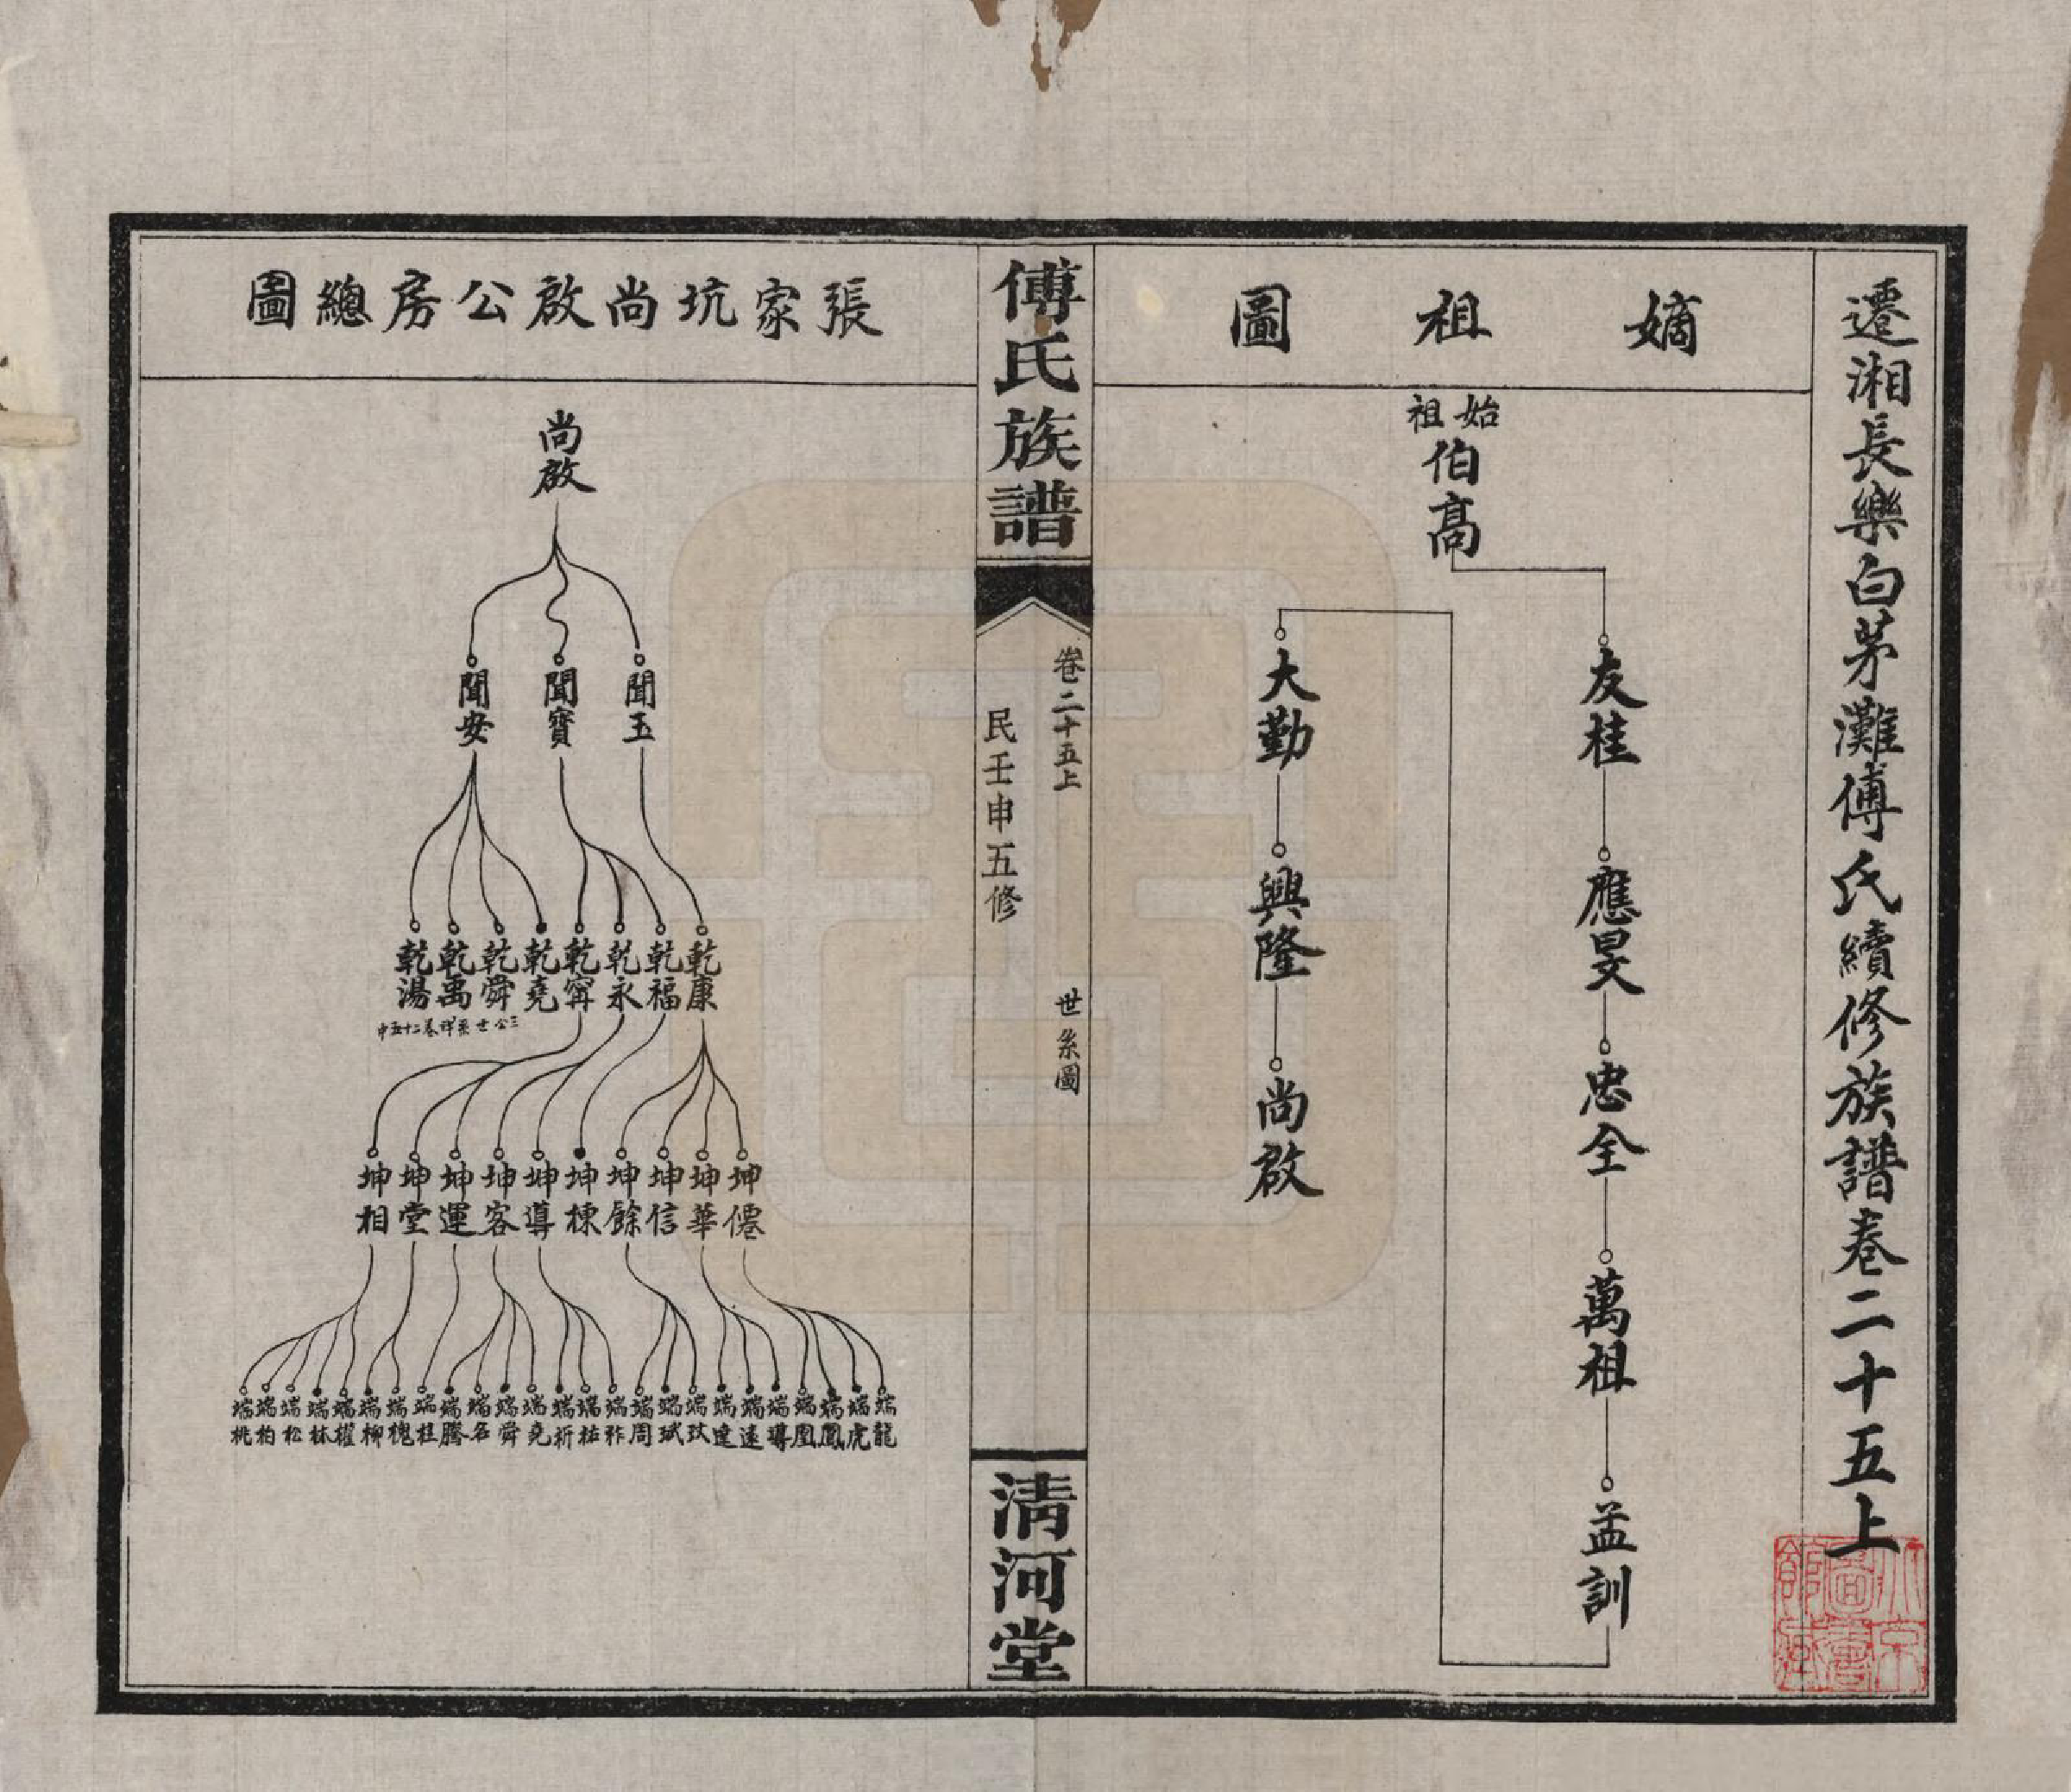 遷湘長樂白茅灘傅氏續修族譜卷二十五上
嫡祖圖
始祖
伯高
友桂
應旻
忠全
萬祖
孟訓
大勤
興隆
尚啟
傅氏族譜
卷二十五上
世系圖
民壬申五修
清河堂
張家坑尚啟公房總圖
尚啟
聞玉
聞寶
聞安
乾康
乾福
乾永
乾甯
乾堯
乾舜
乾禹
乾湯
三公世系詳卷二十五中
坤僊
坤華
坤信
坤餘
坤棟
坤導
坤客
坤運
坤堂
坤相
端龍
端虎
端鳳
端凰
端導
端遠
端達
端玟
端斌
端周
端祚
端祜
端祈
端堯
端舜
端名
端騰
端桂
端槐
端柳
端權
端林
端松
端柏
端桃
北京
圖書
館藏